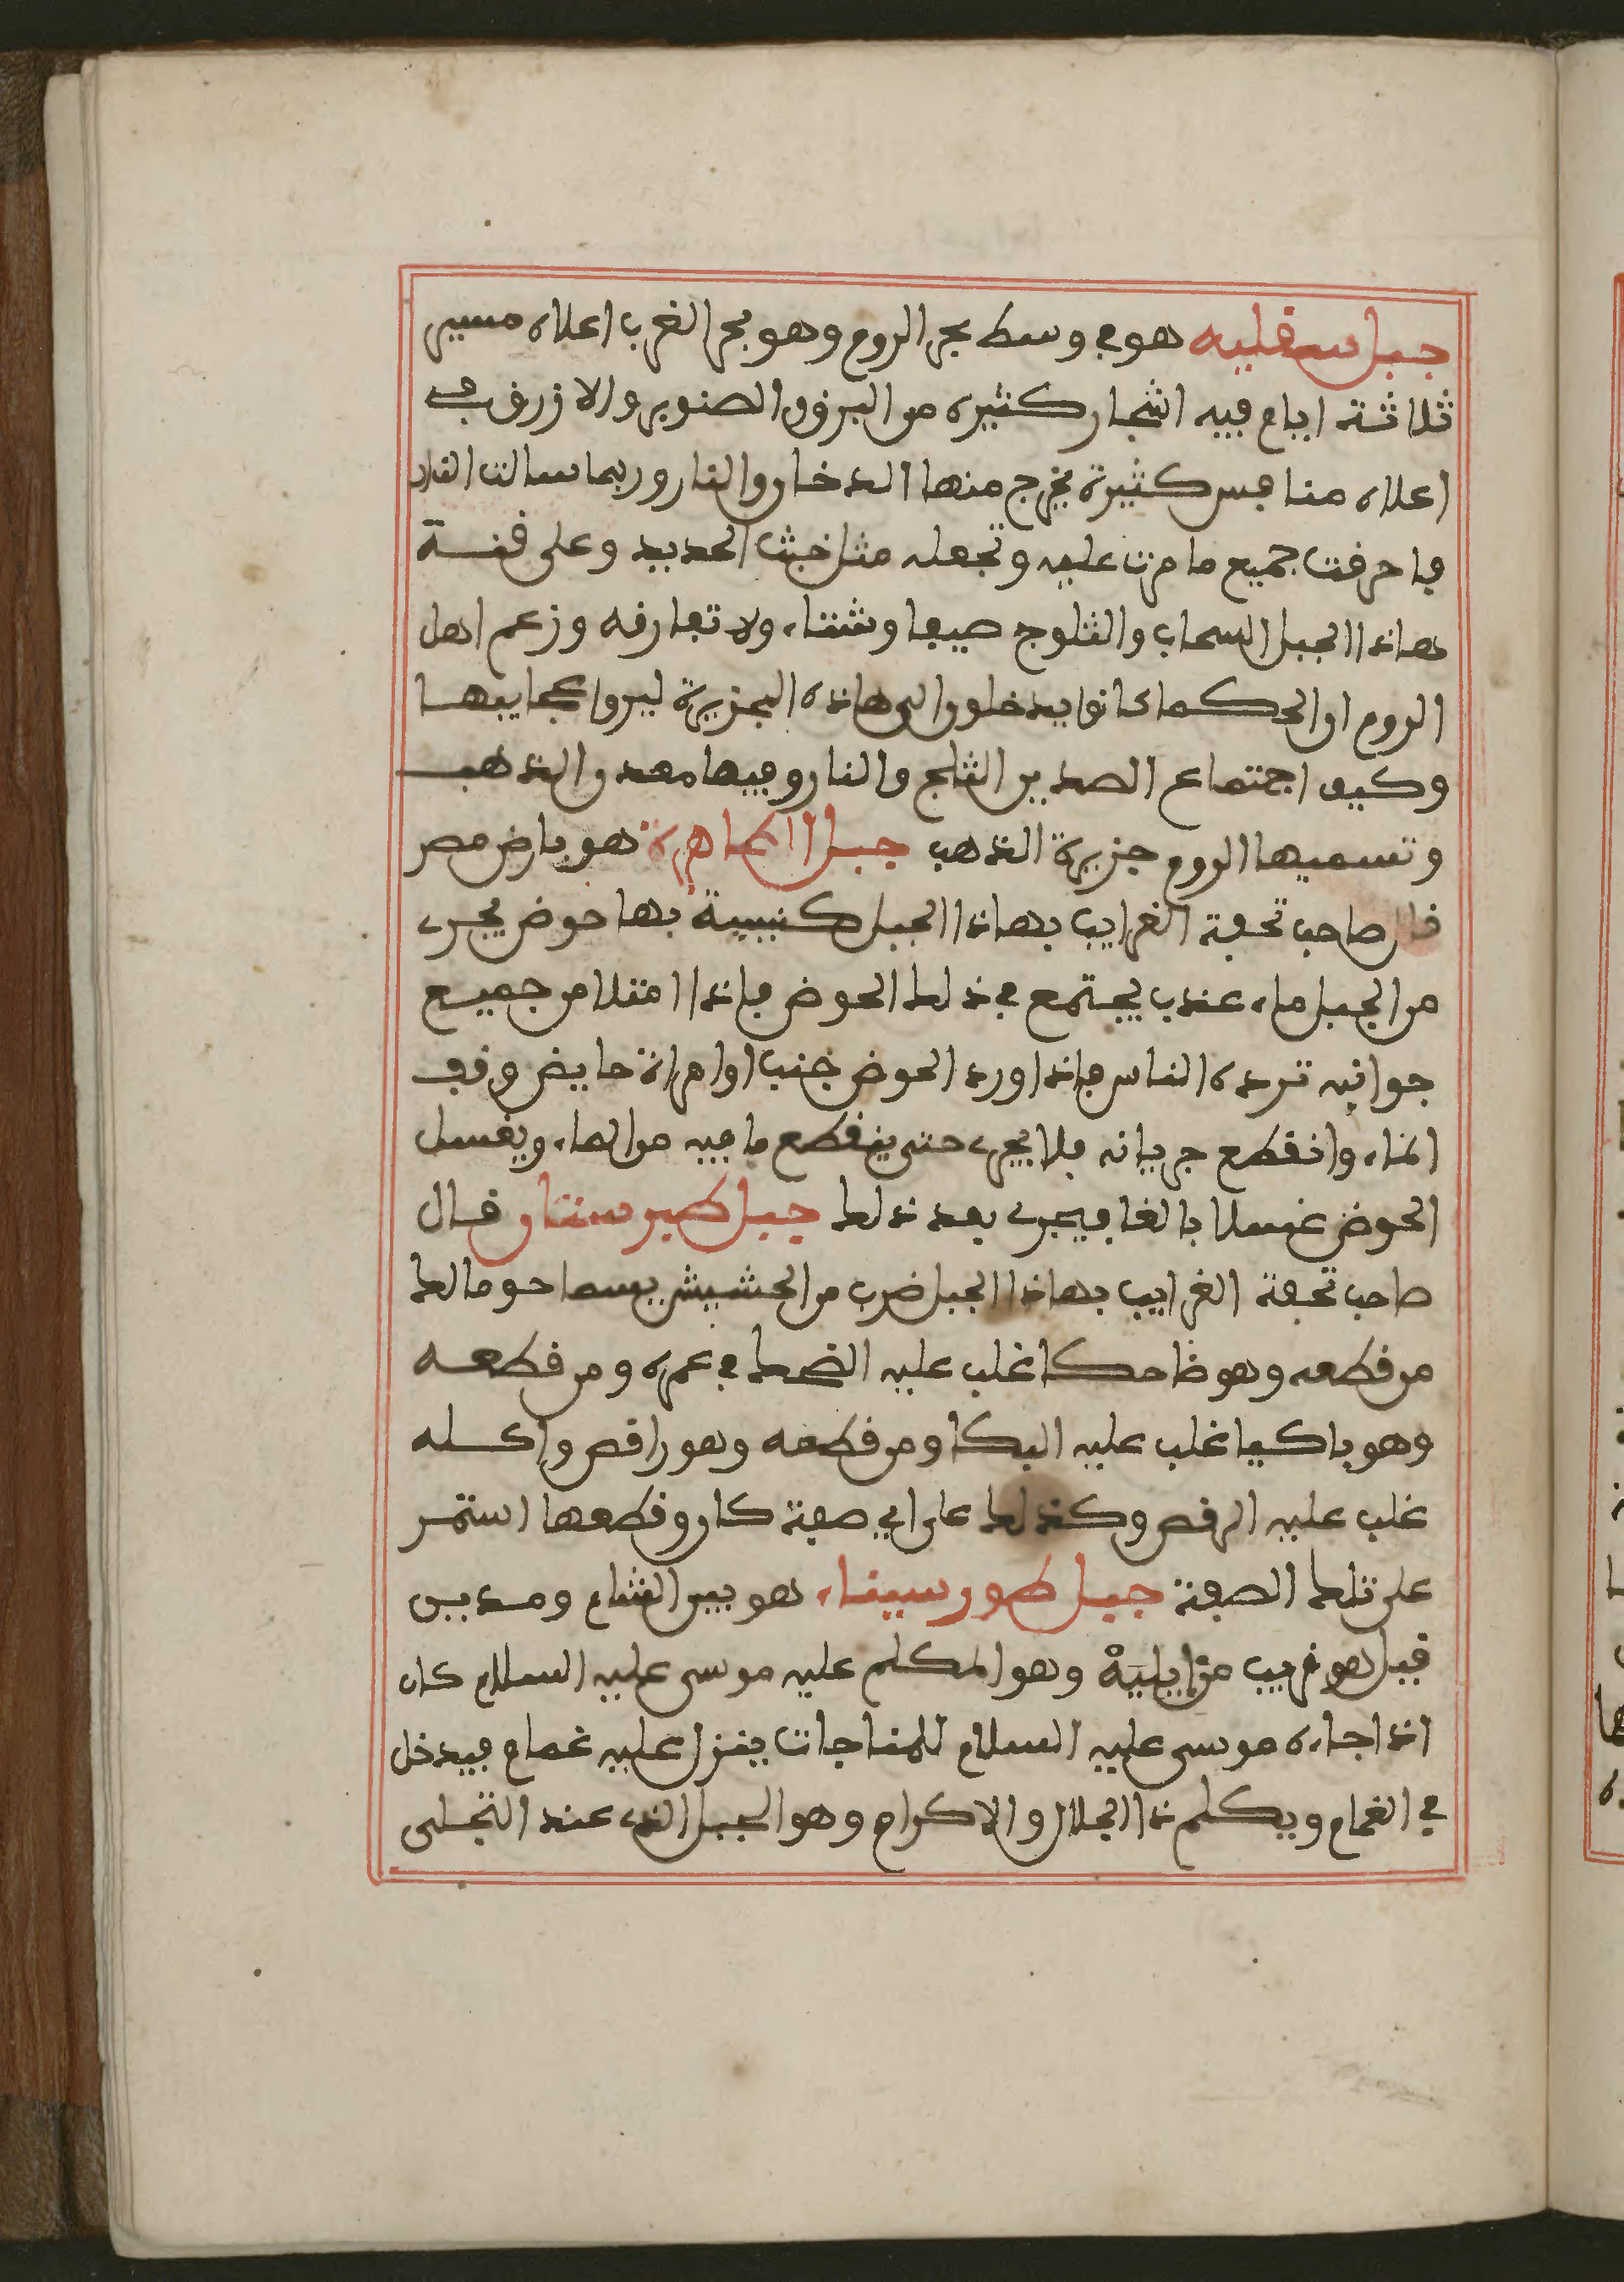 جبل سقليه هو في وسط بحر الروم وهو بحر الغرب اعلاه مسير
ثلاثة ايام فيه اشجار كثيره من البرذق الصنوبر والارزن في
اعلاه منافس كثيرة يخرج منها الدخان والنار وربما سالت النار
فاحرقت جميع ما مرت عليه وتجعله مثل خبث الحديد وعلى قنـة
هاذا الجبل السحاب والثلوج صيفا وشتاء ولا تفارقه وزعم اهل
الروم ان الحكما كانوا يدخلون الى هاذه الجزيرة ليروا عجايبها
وكيف اجتماع الضدين الثلج والنار وفيها معدن الذهب
وتسميها الروم جزيرة الذهب جبل الطاهرة هو بارض مصر
قال صاحب تحفة الغرايب بهاذا الجبل كنيسة بها حوض يجري
من الجبل ماء عذب يجتمع في ذلك الحوض فاذا امتلا من جميع
جوانبه ترده الناس فاذا ورد الحوض جنب او امراة حايض وقف
الماء وانقطع جريانه فلا يجري حتى ينقطع ما فيه من الماء ويغسل
الحوض غسلا بالغا فيجري بعد ذلك جبل طبرستان قال
صاحب تحفة الغرايب بهاذا الجبل ضرب من الحشيش يسما جومالك
من قطعه وهو ضاحكا غلب عليه الضحك في عمره ومن قطعه
وهو باكيا غلب عليه البكا ومن قطعه وهو راقص واكله
غلب عليه الرقص وكذلك على اي صفة كان وقطعها استمر
على تلك الصفة جبل طور سيناء هو بين الشام ومدين
قيل هو قريب من ايلية وهو المكلم عليه موسى عليه السلام كان
اذا جاءه موسى عليه السلام للمناجات ينزل عليه غمام فيدخل
في الغمام ويكلم ذا الجلال والاكرام وهو الجبل الذي عند التجلى